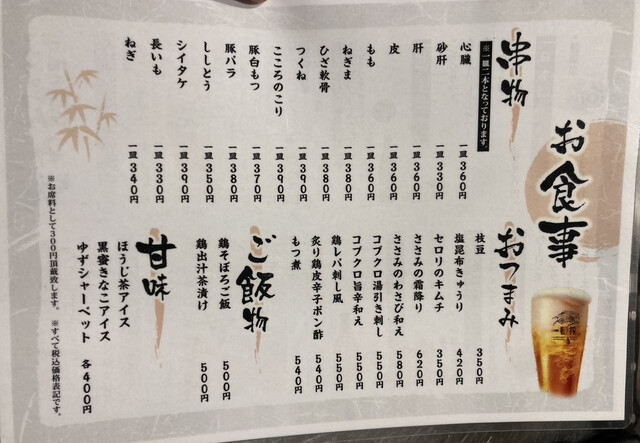 お食事
串物
※一皿二本となっております。
心臓 一皿360円
砂肝 一皿330円
肝 一皿360円
皮 一皿360円
もも 一皿360円
ねぎま 一皿380円
ひざ軟骨 一皿380円
つくね 一皿390円
こころのこり 一皿390円
豚白もつ 一皿370円
豚バラ 一皿380円
ししとう 一皿350円
シイタケ 一皿390円
長いも 一皿330円
ねぎ 一皿340円
おつまみ
枝豆 350円
塩昆布きゅうり 420円
セロリのキムチ 350円
ささみの霜降り 620円
ささみのわさび和え 580円
コブクロ湯引き刺し 550円
コブクロ旨辛和え 550円
鶏レバ刺し風 550円
炙り鶏皮辛子ポン酢 540円
もつ煮 540円
ご飯物
鶏そぼろご飯 500円
鶏出汁茶漬け 500円
甘味
ほうじ茶アイス
黒蜜きなこアイス
ゆずシャーベット 各400円
※お席料として300円頂戴致します。 ※すべて税込価格表記です。